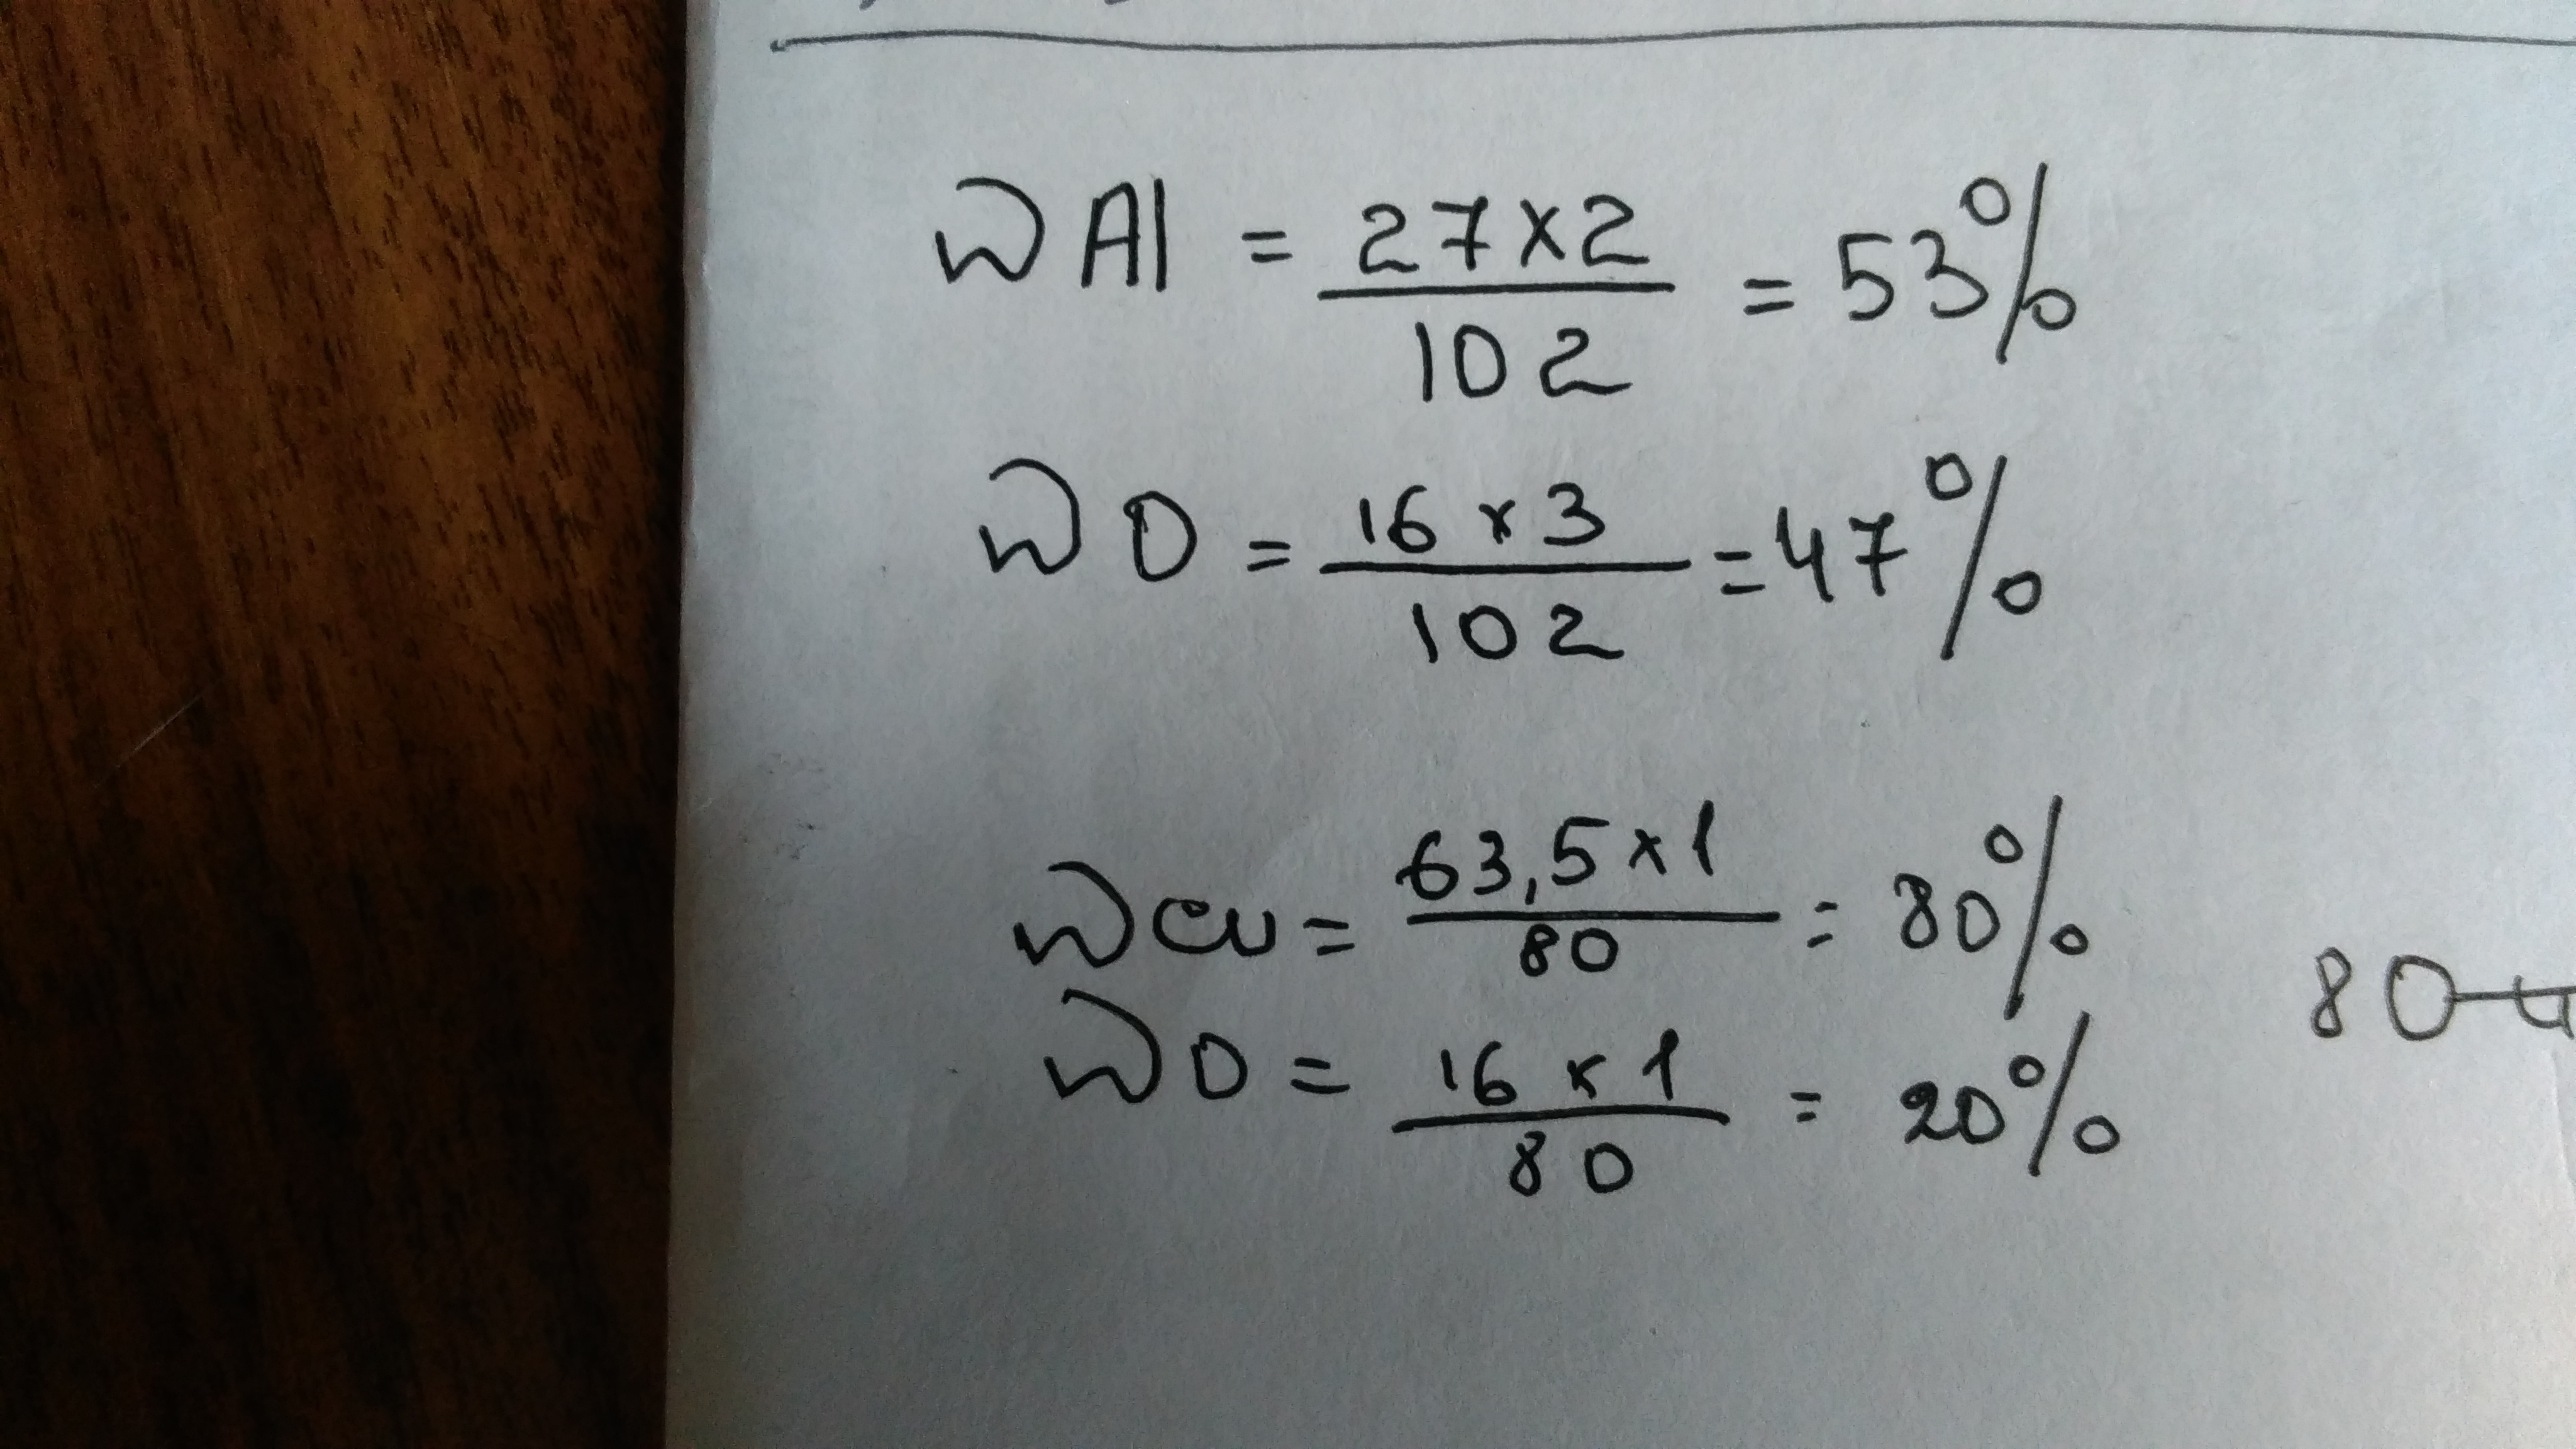 ω Al = 27×2 / 102 = 53%
ω O = 16 × 3 / 102 = 47%
ω Cu = 63,5×1 / 80 = 80%
80
ω O = 16 × 1 / 80 = 20%